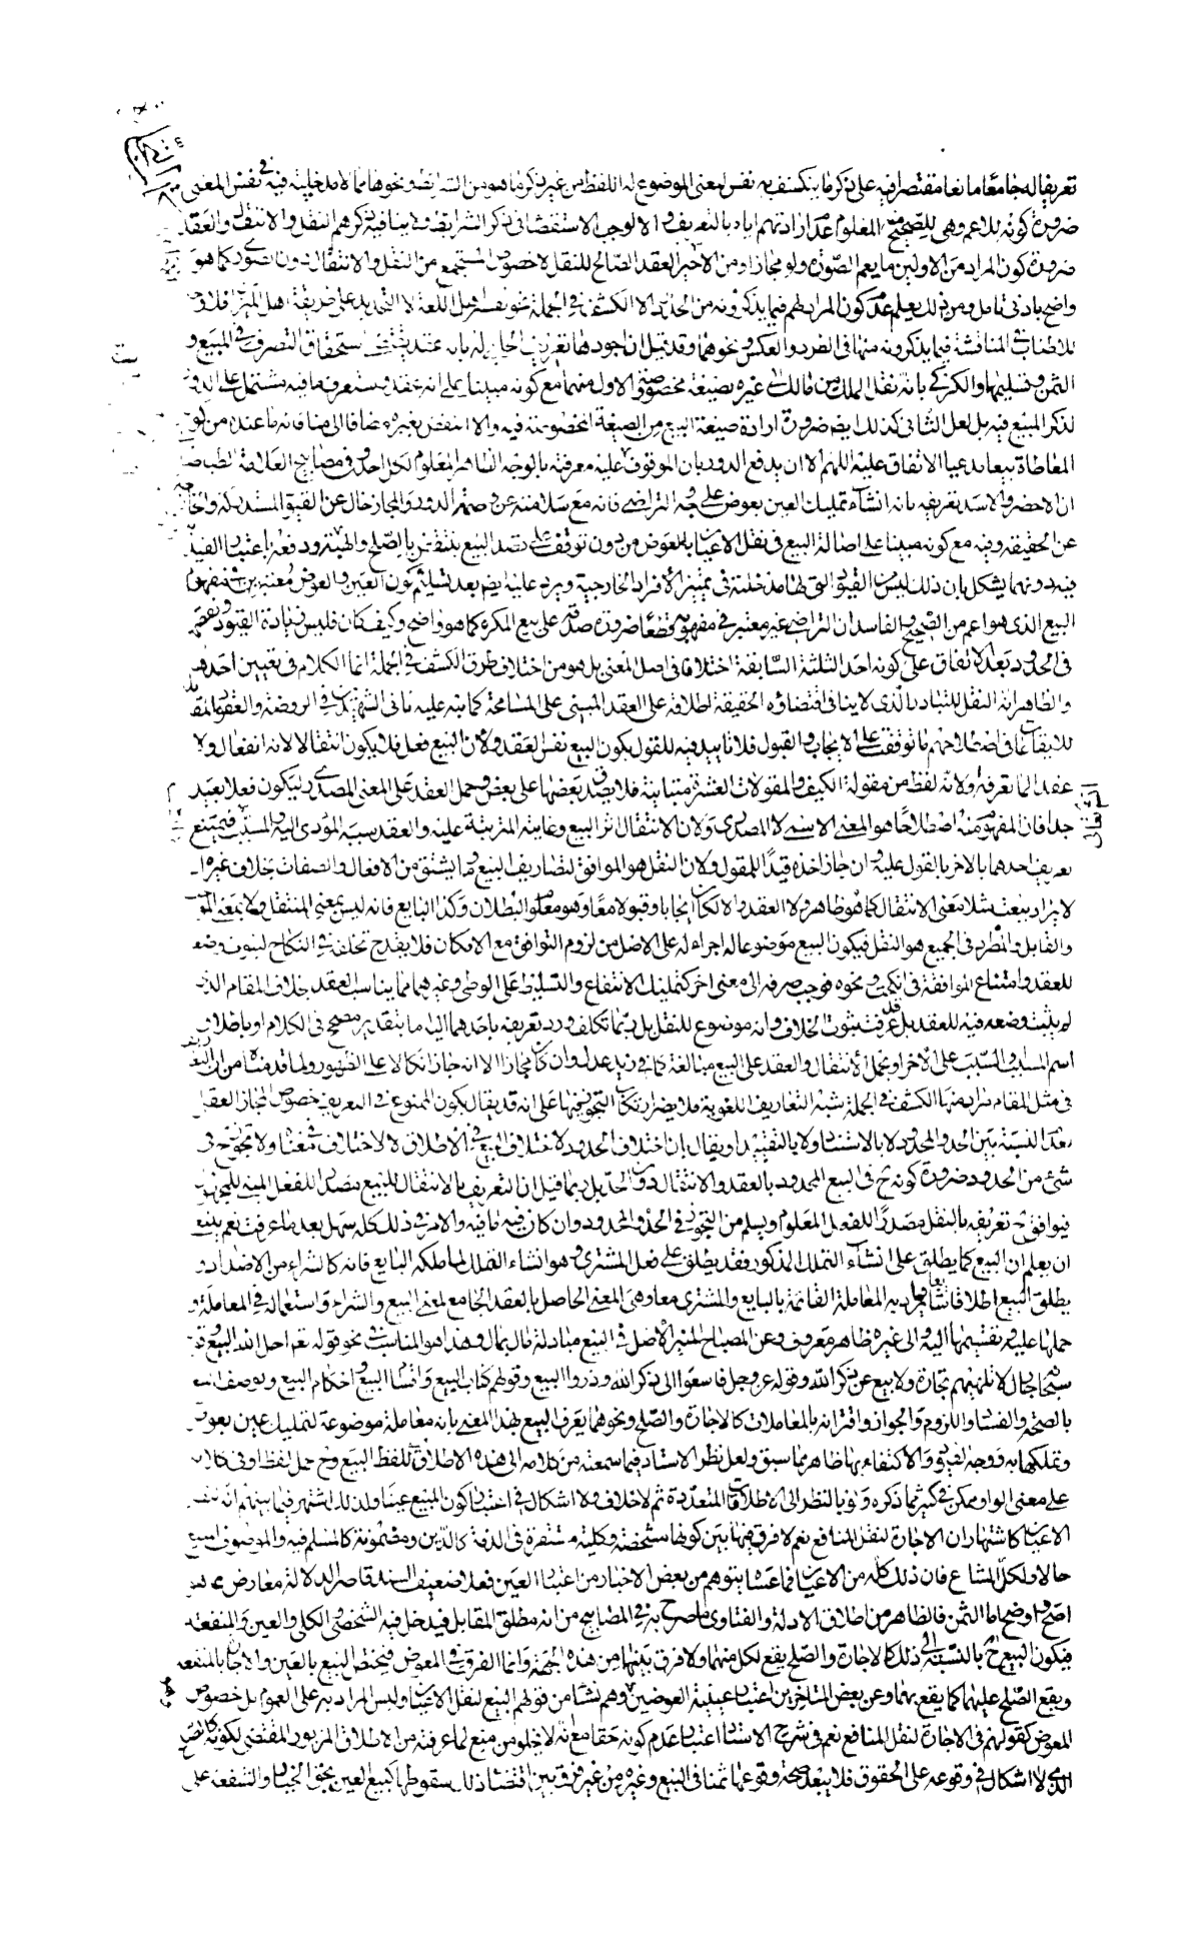 تعريفا له جامعا مانعا مقتصرا فيه على ذكر ما ينكشف به نفس المعنى الموضوع له اللفظ من غير ذكر ما هو من الشرائط ونحوها مما لا مدخلية فيه في نفس المعنى
ضرورة كونه للاعم وهى للصحيح المعلوم عدم ارادتهم اياه بالتعريف والا لوجب الاستقصاء في ذكر الشرائط ولا ينافيه ذكرهم النقل والانتقال والعقد
ضرورة كون المراد من الاولين ما يعم الصوري ولو مجازا ومن الاخير العقد الصالح للنقل لا خصوص المستجمع من النقل والانتقال دون الصوري كما هو
واضح بادنى تامل ومن ذلك يعلم عدم كون المراد لهم فيما يذكرونه من الحد الا الكشف في الجملة نحو تعريف اهل اللغة لا التحديد على طريقة اهل الميزان فلا
للاطناب في المناقشة فيما يذكرونه منها في الطرد والعكس ونحوهما وقد قيل ان اجودها تعريف له بانه عقد يقتضى استحقاق التصرف في المبيع و
الثمن وتسليمهما والكركي بانه نقل الملك من مالك الى غيره بصيغة مخصوصة والاول منهما مع كونه مبنيا على انه عقد وستعرف ما فيه مشتمل على الدور
لذكر المبيع فيه بل لعل الثاني كذلك ايضا ضرورة ارادة صيغة البيع من الصيغة المخصوصة فيه والا انتقض بغيره مضافا الى منافاته ما عنده من كون
المعاطاة بيعا مدعيا الاتفاق عليه اللهم الا ان يدفع الدور بان الموقوف عليه معرفته بالوجه الظاهر المعلوم لكل احد وفي مصابيح العلامة الطباطبائي
ان الاخصر والاسد تعريفه بانه انشاء تمليك العين بعوض على وجه التراضي فانه مع سلامته عن وصمة الدور والمجاز خال عن القيود المستدركة
عن الحقيقة وفيه مع كونه مبنيا على اصالة البيع في نقل الاعيان بالعوض من دون توقف على قصد البيع ينتقض بالصلح والهبة ودفعه باعتبار القيد
فيه دونهما يشكل بان ذلك ليس من القيود التي لها مدخلية في تميز الافراد الخارجية ويرد عليه ايضا بعد تسليم كون العين والعوض معتبرين في مفهوم
البيع الذي هو اعم من الصحيح والفاسد ان التراضي غير معتبر في مفهومه قطعا ضرورة صدقه على بيع المكره كما هو واضح وكيف كان فليس زيادة القيود ونقصها
في الحدود بعد الاتفاق على كونه احد الثلثة السابقة اختلافا في اصل المعنى بل هو من اختلاف طرق الكشف في الجملة انما الكلام في تعيين احدها
والظاهر انه النقل للتبادر الذي لا ينافي اقتضائه الحقيقة اطلاقه على العقد المبني على المسامحة كما نبه عليه ثاني الشهيدين في الروضة والعقود المقابلة
للايقاعات في اصطلاحهم ما توقفت على الايجاب والقبول فلا تاييد فيه للقول بكون البيع نفس العقد ولان البيع فعل فلا يكون انتقالا لانه انفعال ولا
عقدا لما تعرفه ولانه لفظ من مقولة الكيف والمقولات العشرة متباينة فلا يصدق بعضها على بعض وحمل العقد على المعنى المصدري ليكون فعلا بعيد
جدا فان المفهوم منه اصطلاحا هو المعنى الاسمي لا المصدري ولان الانتقال اثر البيع وغايته المترتبة عليه والعقد سببه المؤدي اليه والسبب فيمتنع
تعريف احدهما بالاخر بالقول عليه وان جاز اخذه قيدا للمقول ولان النقل هو الموافق لتصاريف البيع وما يشتق من الافعال والصفات بخلاف غيره اذ
لا يراد ببعت مثلا معنى الانتقال كما هو ظاهر ولا العقد والا لكان ايجابا وقبولا معا وهو معلوم البطلان وكذا البايع فانه ليس بمعنى المنتقل ولا بمعنى الموجب
والقابل والمطرد في الجميع هو النقل فيكون البيع موضوعا له اجراء له على الاصل من لزوم التوافق مع الامكان فلا يقدح تخلفه في النكاح لثبوت وضعه
للعقد وامتناع الموافقة في انكحت ونحوه فوجب صرفه الى معنى اخر كتمليك الانتفاع والتسليط على الوطي وغيرهما مما يناسب العقد بخلاف المقام الذي
لم يثبت وضعه فيه للعقد بل قد عرفت ثبوت الخلاف وانه موضوع للنقل بل ربما تكلف ورد تعريفه باحدهما اليه اما بتقدير مصحح في الكلام او باطلاق
اسم المسبب والسبب على الاخر او بحمل الانتقال والعقد على البيع مبالغة كما في زيد عدل وان كان مجازا الا انه جاز اتكالا على الظهور ولما قدمناه من ان التعريف
في مثل المقام يراد منها الكشف في الجملة شبه التعاريف اللغوية فلا يضر ارتكاب التجوز فيها على انه قد يقال بكون الممنوع في التعريف خصوص المجاز العقلي
لعدم النسبة بين الحد والمحدود لا بالاسناد ولا بالتقييد او يقال ان اختلاف الحدود لاختلاف البيع في الاطلاق لا لاختلاف في معناه ولا تجوز في
شيء من الحدود ضرورة كونه ح في البيع المحدود بالعقد والانتقال دون الحد بل ربما قيل ان التعريف بالانتقال للبيع مصدرا للفعل المبني للمجهول
فيوافق ح تعريفه بالنقل مصدرا للفعل المعلوم ويسلم من التجوز في الحد والمحدود وان كان فيه ما فيه والامر في ذلك كله سهل بعد ما عرفت نعم ينبغي
ان يعلم ان البيع كما يطلق على انشاء التمليك المذكور فقد يطلق على فعل المشتري وهو انشاء التملك لما ملكه البايع فانه كالشراء من الاضداد و
يطلق البيع اطلاقا شايعا مرادا به المعاملة القائمة بالبايع والمشتري معا وهي المعنى الحاصل بالعقد الجامع لمعنى البيع والشراء واستعماله في المعاملة و
حملها عليه وتقسيمها اليه والى غيره ظاهر معروف وعن المصباح المنير الاصل في البيع مبادلة مال بمال وهذا هو المناسب في نحو قوله تعالى احل الله البيع وقوله
سبحانه رجال لا تلهيهم تجارة ولا بيع عن ذكر الله وقوله عز وجل فاسعوا الى ذكر الله وذروا البيع وقولهم كتاب البيع واقسام البيع واحكام البيع وتوصف
بالصحة والفساد واللزوم والجواز واقترانه بالمعاملات كالاجارة والصلح ونحوهما يعرف البيع بهذا المعنى بانه معاملة موضوعة لتمليك عين بعوض
وتملكها به ووجه القيود والاكتفاء بها ظاهر مما سبق ولعل نظر الاستاد فيما سمعته من كلامه الى هذه الاطلاق للفظ البيع وح حمل لفظ او في كلامه
على معنى الواو ممكن في كثير مما ذكره وقوي بالنظر الى الاطلاقات المتعددة ثم لا خلاف ولا اشكال في اعتبار كون المبيع عينا ولذلك اشتهر فيما بينهم انه لنقل
الاعيان كاشتهار ان الاجارة لنقل المنافع نعم لا فرق فيها بين كونها مشخصة وكلية مستقرة في الذمة كالدين ومضمونة كالمسلم فيه والموصوف المبيع
حالا ولكل المشاع فان ذلك كله من الاعيان فما عساه يتوهم من بعض الاخبار من اعتبار العين فعلا ضعيف السند قاصر الدلالة معارض بما هو
اصح واوضح اما الثمن فالظاهر من اطلاق الادلة والفتاوى ما صرح به في المصابيح من انه مطلق المقابل فيدخل فيه الشخصي والكلي والعين والمنفعة
فيكون البيع ح بالنسبة الى ذلك كالاجارة والصلح يقع لكل منهما ولا فرق بينها من هذه الجهة وانما الفرق في المعوض فيختص البيع بالعين والاجارة بالمنفعة
ويقع الصلح عليهما كما يقع بهما وعن بعض المتاخرين اعتبار عينية العوضين وهم نشأ من قولهم البيع لنقل الاعيان وليس المراد به على العموم بل خصوص
المعوض كقولهم في الاجارة لنقل المنافع نعم في شرح الاستاد اعتبار عدم كونه حقا مع انه لا يخلو من منع لما عرفته من الاطلاق المزبور المقتضي لكونه كالصلح
الذي لا اشكال في وقوعه على الحقوق فلا يبعد صحة وقوعها ثمنا في البيع وغيره من غير فرق بين اقتضاء ذلك سقوطها كبيع العين بحق الخيار والشفعة على